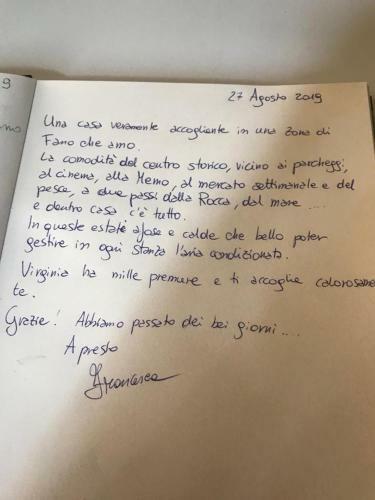 27 Agosto 2019
Una casa veramente accogliente in una zona di
Fano che amo.
La comodità del centro storico, vicino ai parcheggi,
al cinema, alla Memo, al mercato settimanale e del
pesce, a due passi dalla Rocca, dal mare ....
e dentro casa c'è tutto.
In queste estate afose e calde che bello poter
gestire in ogni stanza l'aria condizionata.
Virginia ha mille premure e ti accoglie calorosame
te.
Grazie! Abbiamo passato dei bei giorni....
A presto
Francesca
9